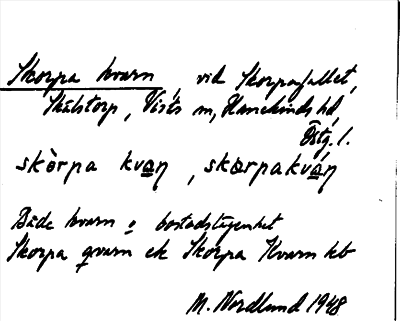 Skorpa kvarn, vid Skorpafallet,
Skälstorp, Vists sn, Hanekinds hd,
Östg. l.
skòrpa kvaṇ, skòrpakváṇ
Både kvarn o bostadslägenhet
Skorpa qvarn ek Skorpa Kvarn kb
M. Nordlund 1948